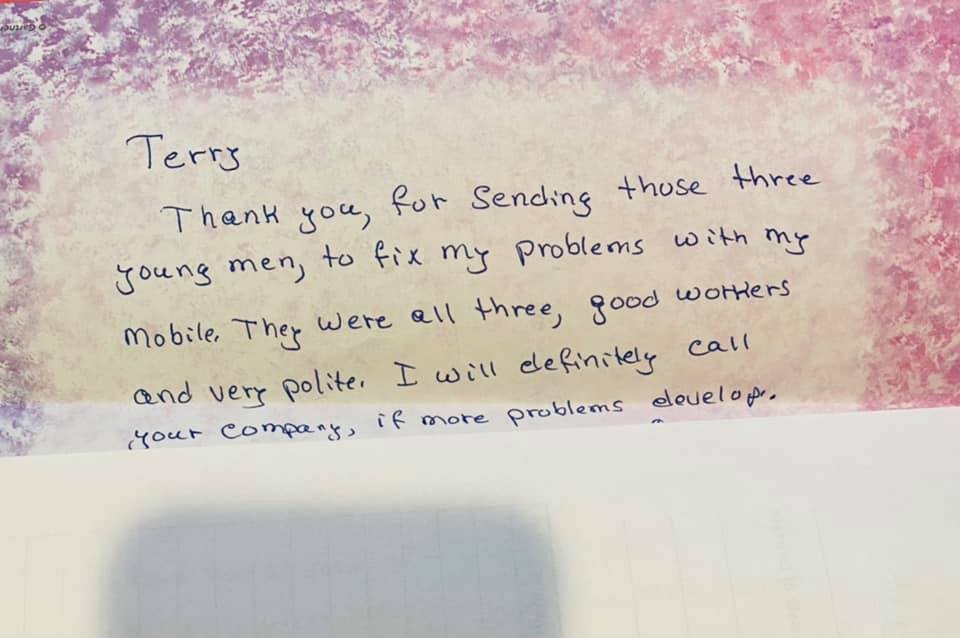 Terry
Thank you, for Sending those three
young men, to fix my problems with my
mobile. They were all three, good workers
and very polite. I will definitely call
your company, if more problems develop.